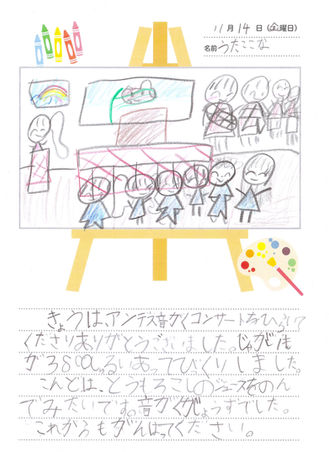 11月14日(金曜日)
名前 うたここな
きょうは、アンデス音がくコンサートをひらいて
くださりありがとうございました。じゃがいも
が3800しゅるいあってびっくりしました。
こんどは、とうもろこしのジュースをのん
でみたいです。音がくがじょうずでした。
これからもがんばってください。